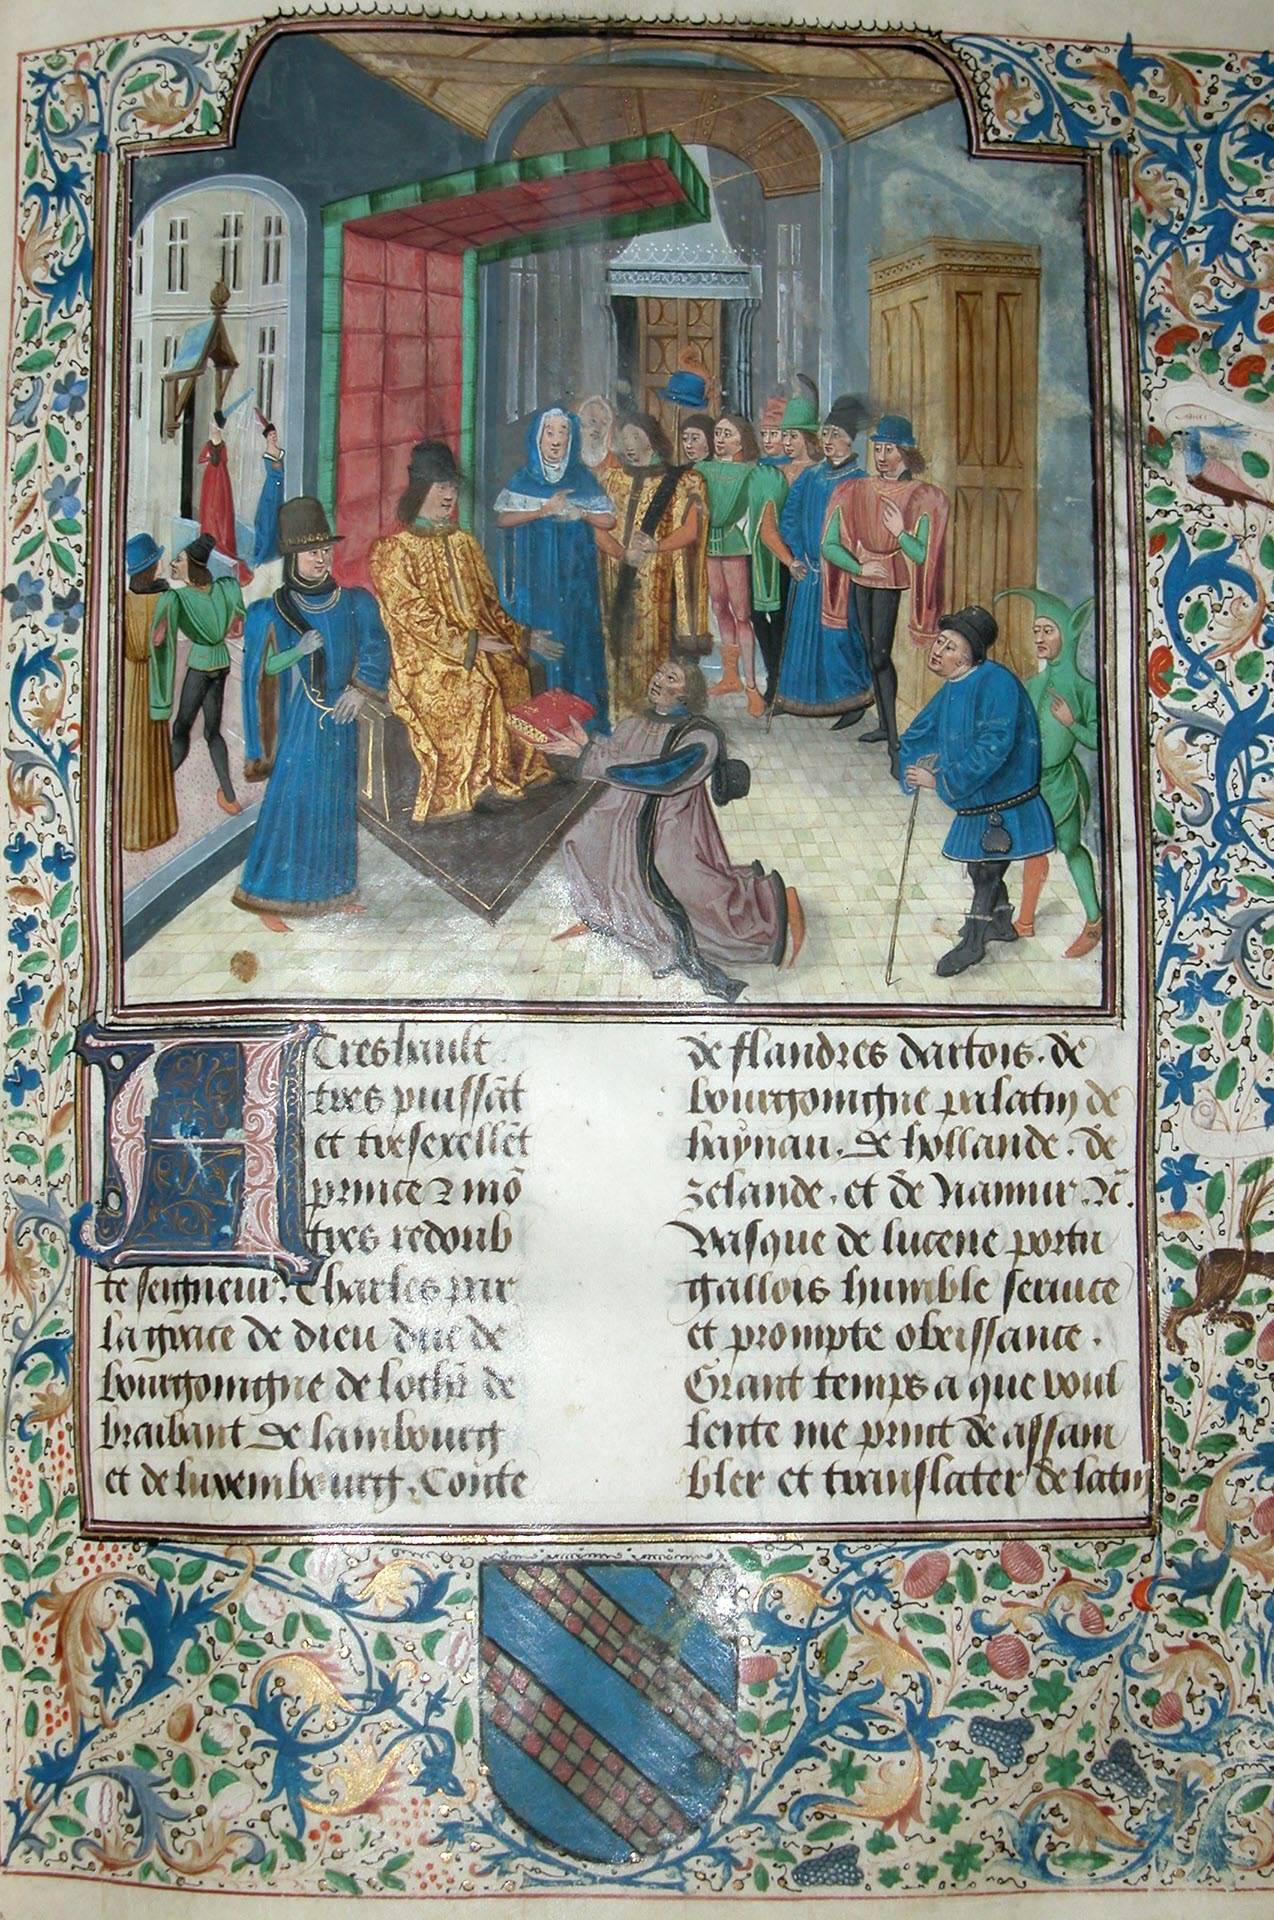 A Treshault
tres puissāt
et tresexellēt
prince & mō
tres redoub
te seigneur. Charles par
la grace de dieu duc de
bourgoingne de lothr̄ de
braibant de lambourg
et de luxembourg. Conte
de flandres dartois. de
bourgoingne palatin de
haynau. de hollande. de
zelande. et de Namur. &c̄.
Vasque de lucene portu
gallois humble seruice
et prompte obeissance.
Grant temps a que voul
lente me print de assam
bler et translater de latin